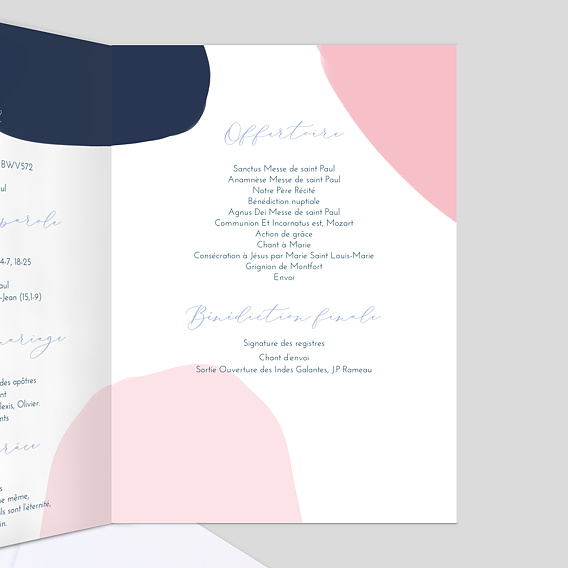 BWV572
parole
4-7, 18-25
-Jean (15,1-9)
mariage
des apôtres
Olivier.
même,
ls sont l'éternité,
Offertoire
Sanctus Messe de saint Paul
Anamnèse Messe de saint Paul
Notre Père Récité
Bénédiction nuptiale
Agnus Dei Messe de saint Paul
Communion Et Incarnatus est, Mozart
Action de grâce
Chant à Marie
Consécration à Jésus par Marie Saint Louis-Marie
Grignion de Montfort
Envoi
Bénédiction finale
Signature des registres
Chant d'envoi
Sortie Ouverture des Indes Galantes, J.P Rameau